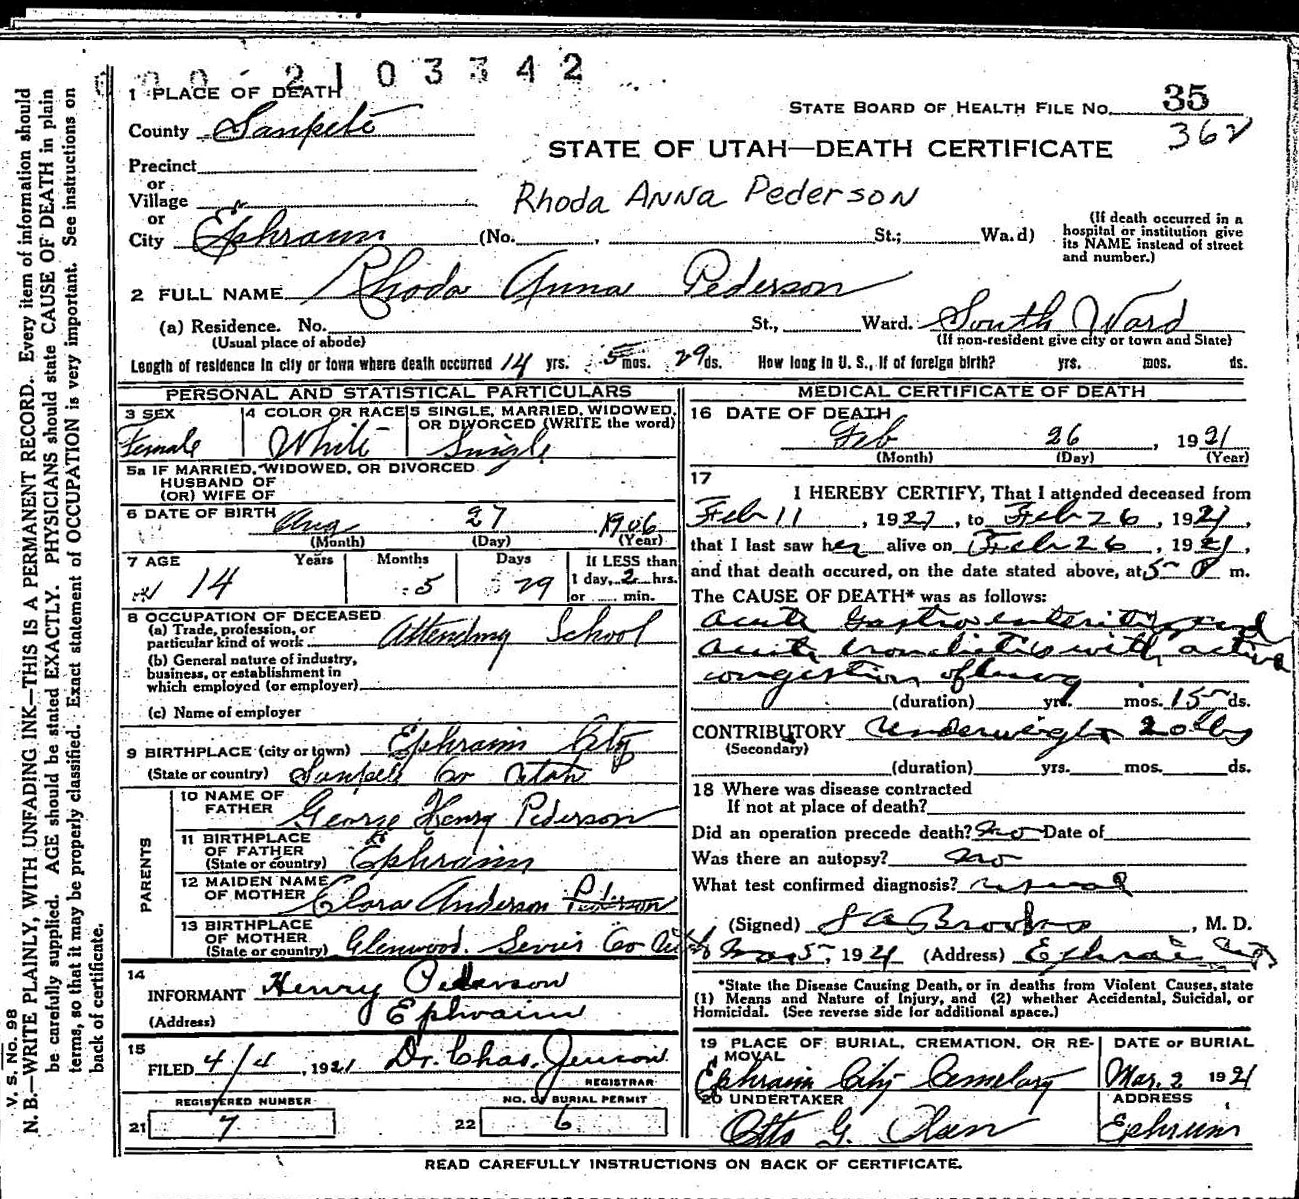 00-2103342
1 PLACE OF DEATH
County Sanpete
STATE BOARD OF HEALTH FILE NO. 35
362
STATE OF UTAH—DEATH CERTIFICATE
Precinct
or
Village
or
City Ephraim (No. , St.; Wa.d)
Rhoda Anna Pederson
(If death occurred in a
hospital or institution give
its NAME instead of street
and number.)
2 FULL NAME Rhoda Anna Pederson
(a) Residence. No. St., Ward. South Ward
(Usual place of abode) (If non-resident give city or town and State)
Length of residence in city or town where death occurred 14 yrs. 5 mos. 29 ds. How long in U. S., if of foreign birth? yrs. mos. ds.
PERSONAL AND STATISTICAL PARTICULARS
3 SEX Female
4 COLOR OR RACE White
5 SINGLE, MARRIED, WIDOWED,
OR DIVORCED (WRITE the word)
Single
5a IF MARRIED, WIDOWED, OR DIVORCED
HUSBAND OF
(OR) WIFE OF
6 DATE OF BIRTH Aug 27 1906
(Month) (Day) (Year)
7 AGE Years Months Days If LESS than
14 5 29 1 day, 2 hrs.
or min.
8 OCCUPATION OF DECEASED
(a) Trade, profession, or
particular kind of work Attending School
(b) General nature of industry,
business, or establishment in
which employed (or employer)
(c) Name of employer
9 BIRTHPLACE (city or town) Ephraim City
(State or country) Sanpete Co Utah
PARENTS
10 NAME OF
FATHER George Henry Pederson
11 BIRTHPLACE
OF FATHER
(State or country) Ephraim
12 MAIDEN NAME
OF MOTHER Clara Anderson Pederson
13 BIRTHPLACE
OF MOTHER
(State or country) Glenwood. Sevier Co Utah
14
INFORMANT Henry Pederson
(Address) Ephraim
15
FILED 4/4, 1921 Dr. Chas. Jenson
REGISTRAR
REGISTERED NUMBER
21 7
NO. OF BURIAL PERMIT
22 6
MEDICAL CERTIFICATE OF DEATH
16 DATE OF DEATH
Feb 26, 1921
(Month) (Day) (Year)
17
I HEREBY CERTIFY, That I attended deceased from
Feb 11, 1921, to Feb 26, 1921,
that I last saw her alive on Feb 26, 1921,
and that death occured, on the date stated above, at 5 P m.
The CAUSE OF DEATH* was as follows:
Acute Gastro enteritis and
acute bronchitis with active
congestion of lung
(duration) yrs. mos. 15 ds.
CONTRIBUTORY Underweight 20 lbs
(Secondary)
(duration) yrs. mos. ds.
18 Where was disease contracted
If not at place of death?
Did an operation precede death? no Date of
Was there an autopsy? no
What test confirmed diagnosis? usual
(Signed) Brooks, M. D.
Mar 5, 1921 (Address) Ephraim
*State the Disease Causing Death, or in deaths from Violent Causes, state
(1) Means and Nature of Injury, and (2) whether Accidental, Suicidal, or
Homicidal. (See reverse side for additional space.)
19 PLACE OF BURIAL, CREMATION, OR RE-
MOVAL
Ephraim City Cemetary
DATE OF BURIAL
Mar. 2 1921
20 UNDERTAKER
Otto G. Olsen
ADDRESS
Ephraim
READ CAREFULLY INSTRUCTIONS ON BACK OF CERTIFICATE.
V. S. No. 98
N. B.—WRITE PLAINLY, WITH UNFADING INK—THIS IS A PERMANENT RECORD. Every item of information should
be carefully supplied. AGE should be stated EXACTLY. PHYSICIANS should state CAUSE OF DEATH in plain
terms, so that it may be properly classified. Exact statement of OCCUPATION is very important. See instructions on
back of certificate.